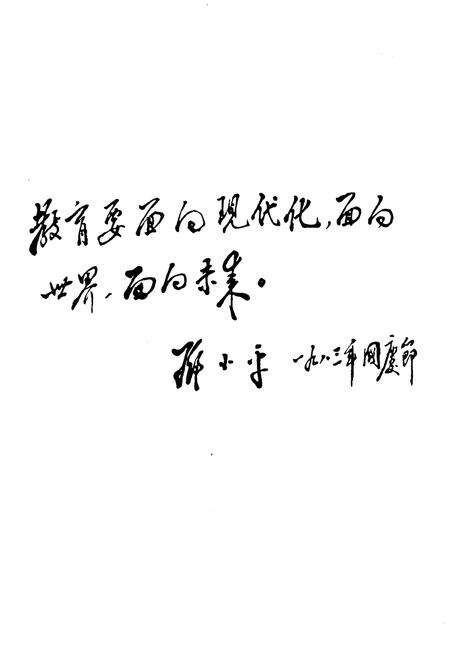 教育要面向现代化，面向
世界，面向未来。
邓小平 一九八三年国庆节